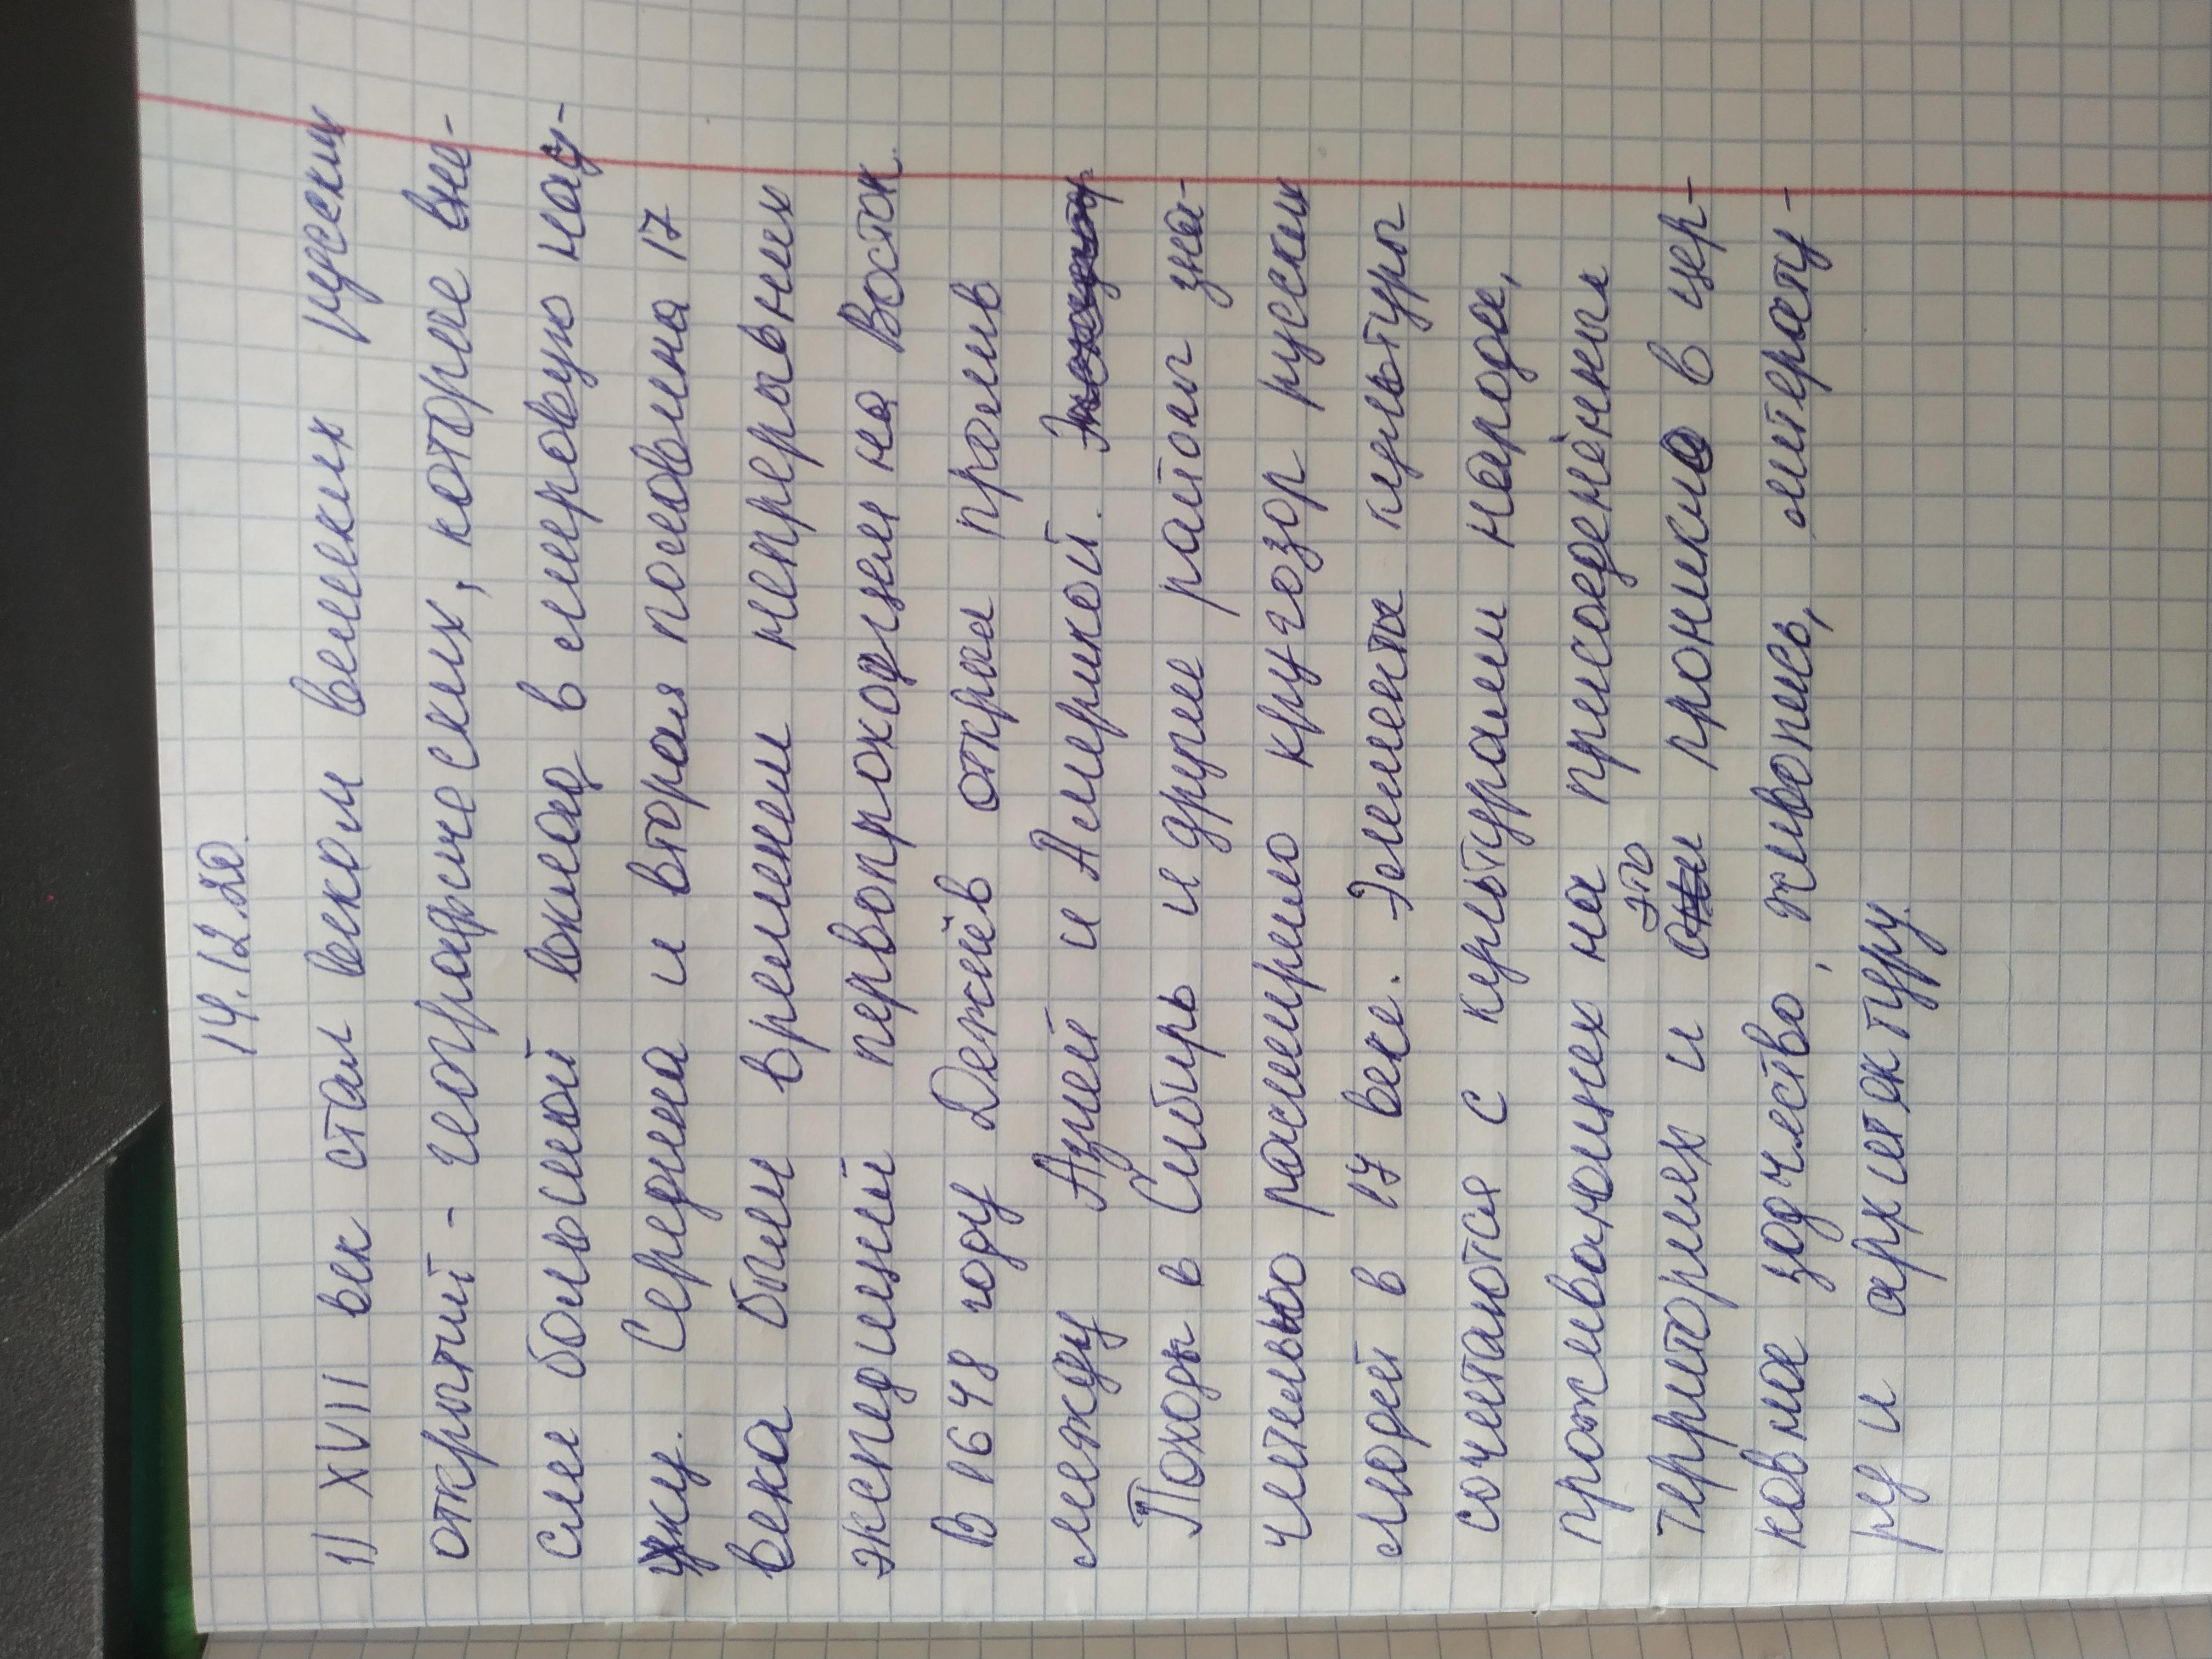 14.12.20.
1) XVII век стал веком великих русских
открытий - географических, которые вне-
сли большой вклад в мировую нау-
ку. Середина и вторая половина 17
века были временем непрерывных
экспедиций первопроходцем на Восток.
В 1648 году Дежнёв открыл пролив
между Азией и Америкой.
Походы в Сибирь и другие районы зна-
чительно расширило кругозор русских
людей в 17 веке. Элементы культуры
сочетаются с культурами народов,
проживающих на присоединённых
территориях и это проникло в цер-
ковное зодчество, живопись, литерату-
ру и архитектуру.